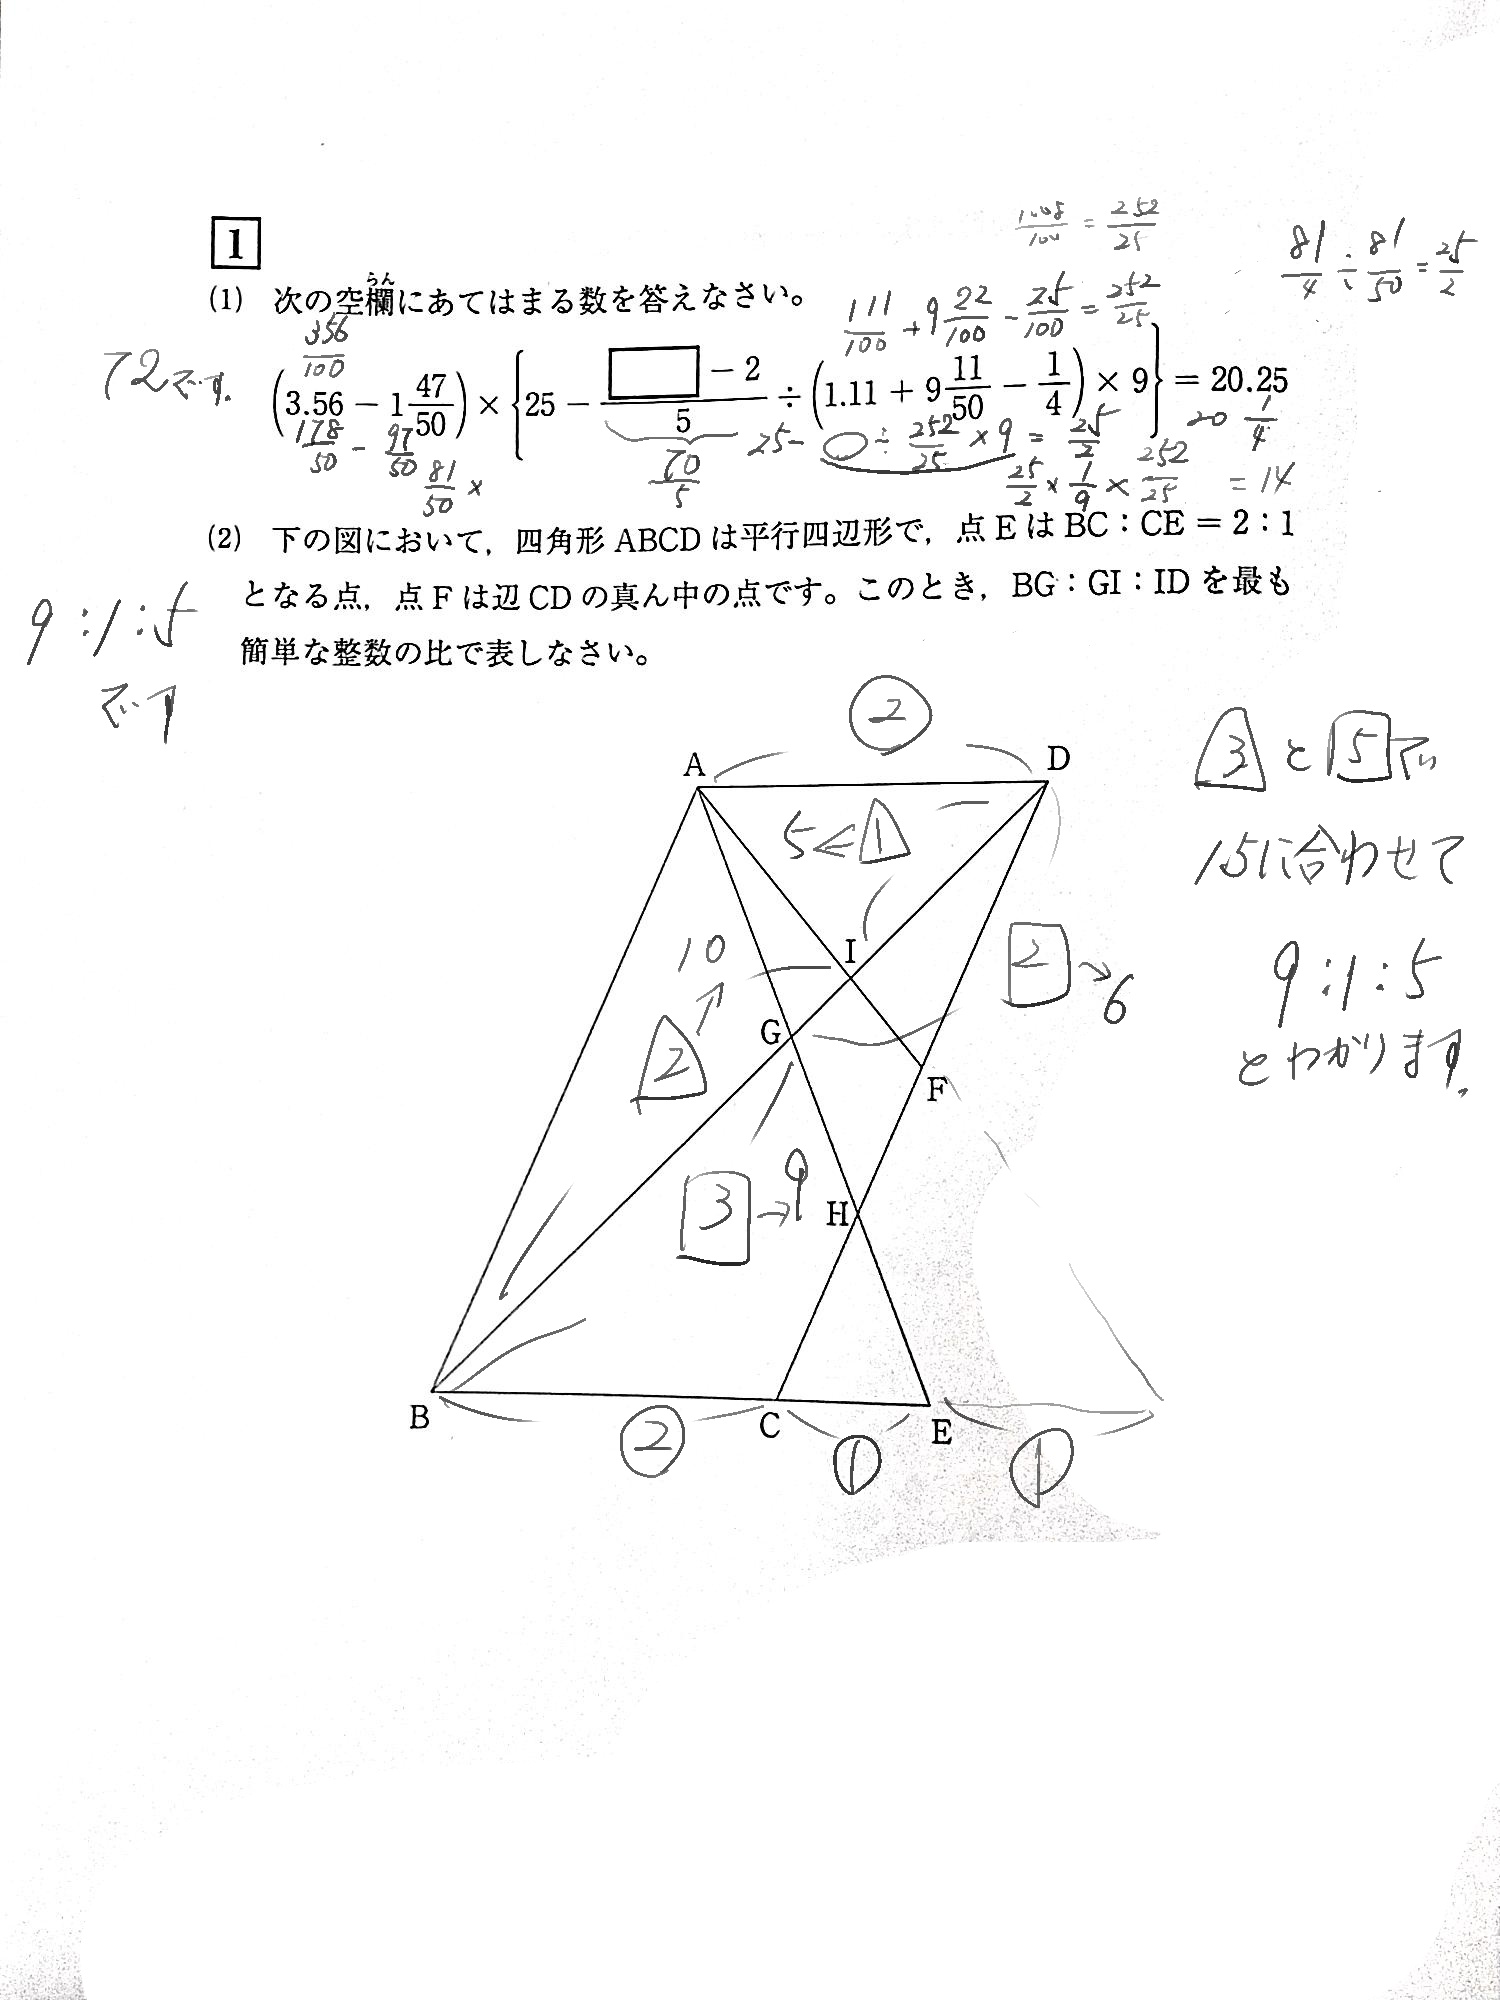 1.48/100 = 252/25
1
(1) 次の空欄にあてはまる数を答えなさい。
らん
111/100 + 9 22/100 - 25/100 = 252/25
81/4 ÷ 81/50 = 25/2
356/100
72です。
(3.56 − 1 47/50) × {25 − □ − 2/5 ÷ (1.11 + 9 11/50 − 1/4) × 9} = 20.25
178/50 - 97/50
81/50 ×
70/5
25- ○ ÷ 252/25 × 9 = 25/2
20 1/4
25/2 × 1/9 × 252/25 = 14
(2) 下の図において，四角形 ABCD は平行四辺形で，点 E は BC：CE = 2：1
となる点，点 F は辺 CD の真ん中の点です。このとき，BG：GI：ID を最も
簡単な整数の比で表しなさい。
9:1:5
です
2
A
D
5 ← 1
3 と 5 で
15に合わせて
9:1:5
とわかります。
10
I
2 → 6
G
2
F
3 → 9
H
B
C
E
2
1
1